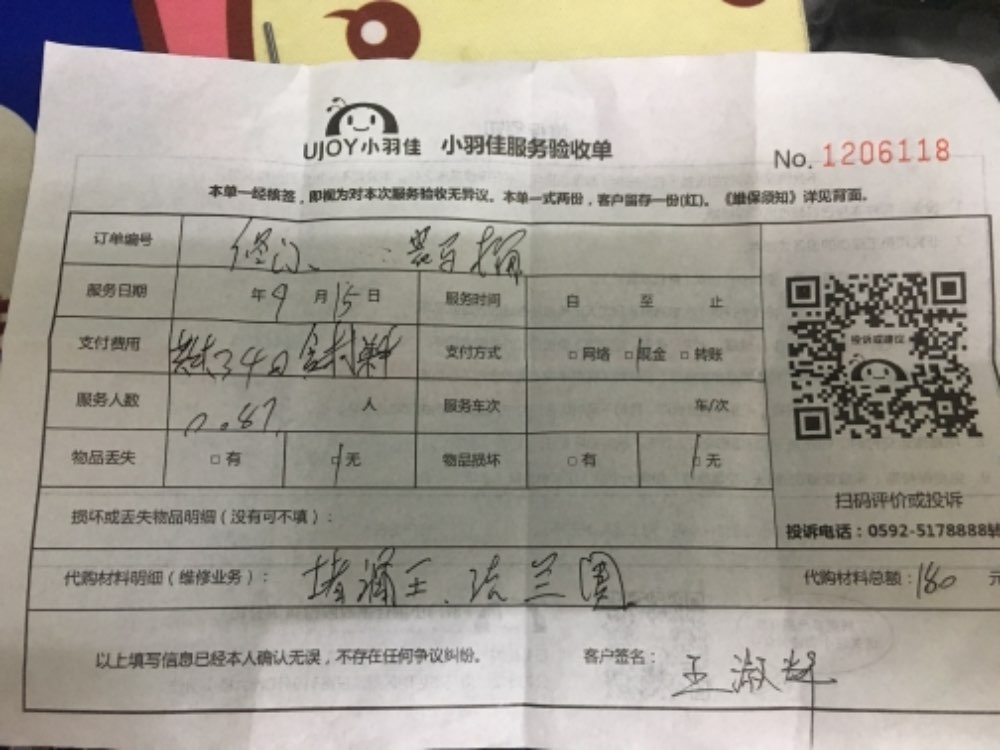 UJOY小羽佳 小羽佳服务验收单
No. 1206118
本单一经核签，即视为对本次服务验收无异议。本单一式两份，客户留存一份(红)。《维保须知》详见背面。
订单编号
服务日期 年 9 月 15 日 服务时间 自 至 止
支付费用 支付方式 □网络 □现金 □转账
服务人数 人 服务车次 车/次
物品丢失 □有 □无 物品损坏 □有 □无
投诉或建议
扫码评价或投诉
投诉电话：0592-5178888转
损坏或丢失物品明细（没有可不填）：
代购材料明细（维修业务）： 堵漏王、法兰圈 代购材料总额：180 元
以上填写信息已经本人确认无误，不存在任何争议纠纷。 客户签名： 王淑